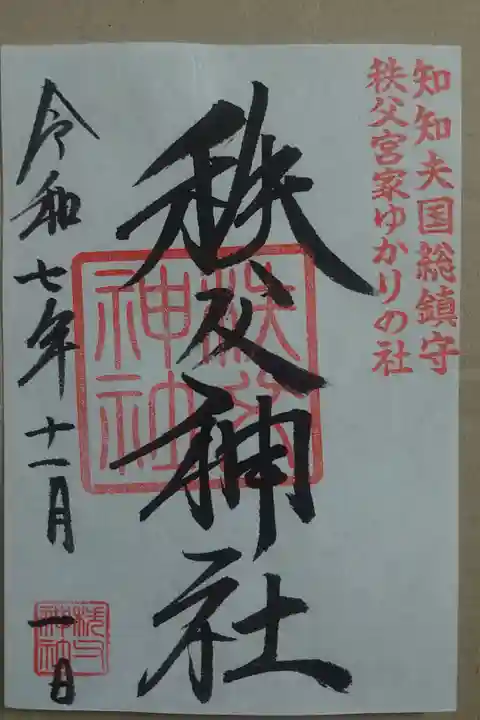 知知夫国総鎮守
秩父宮家ゆかりの社
秩父神社
秩父神社
令和七年十一月一日
秩父神社